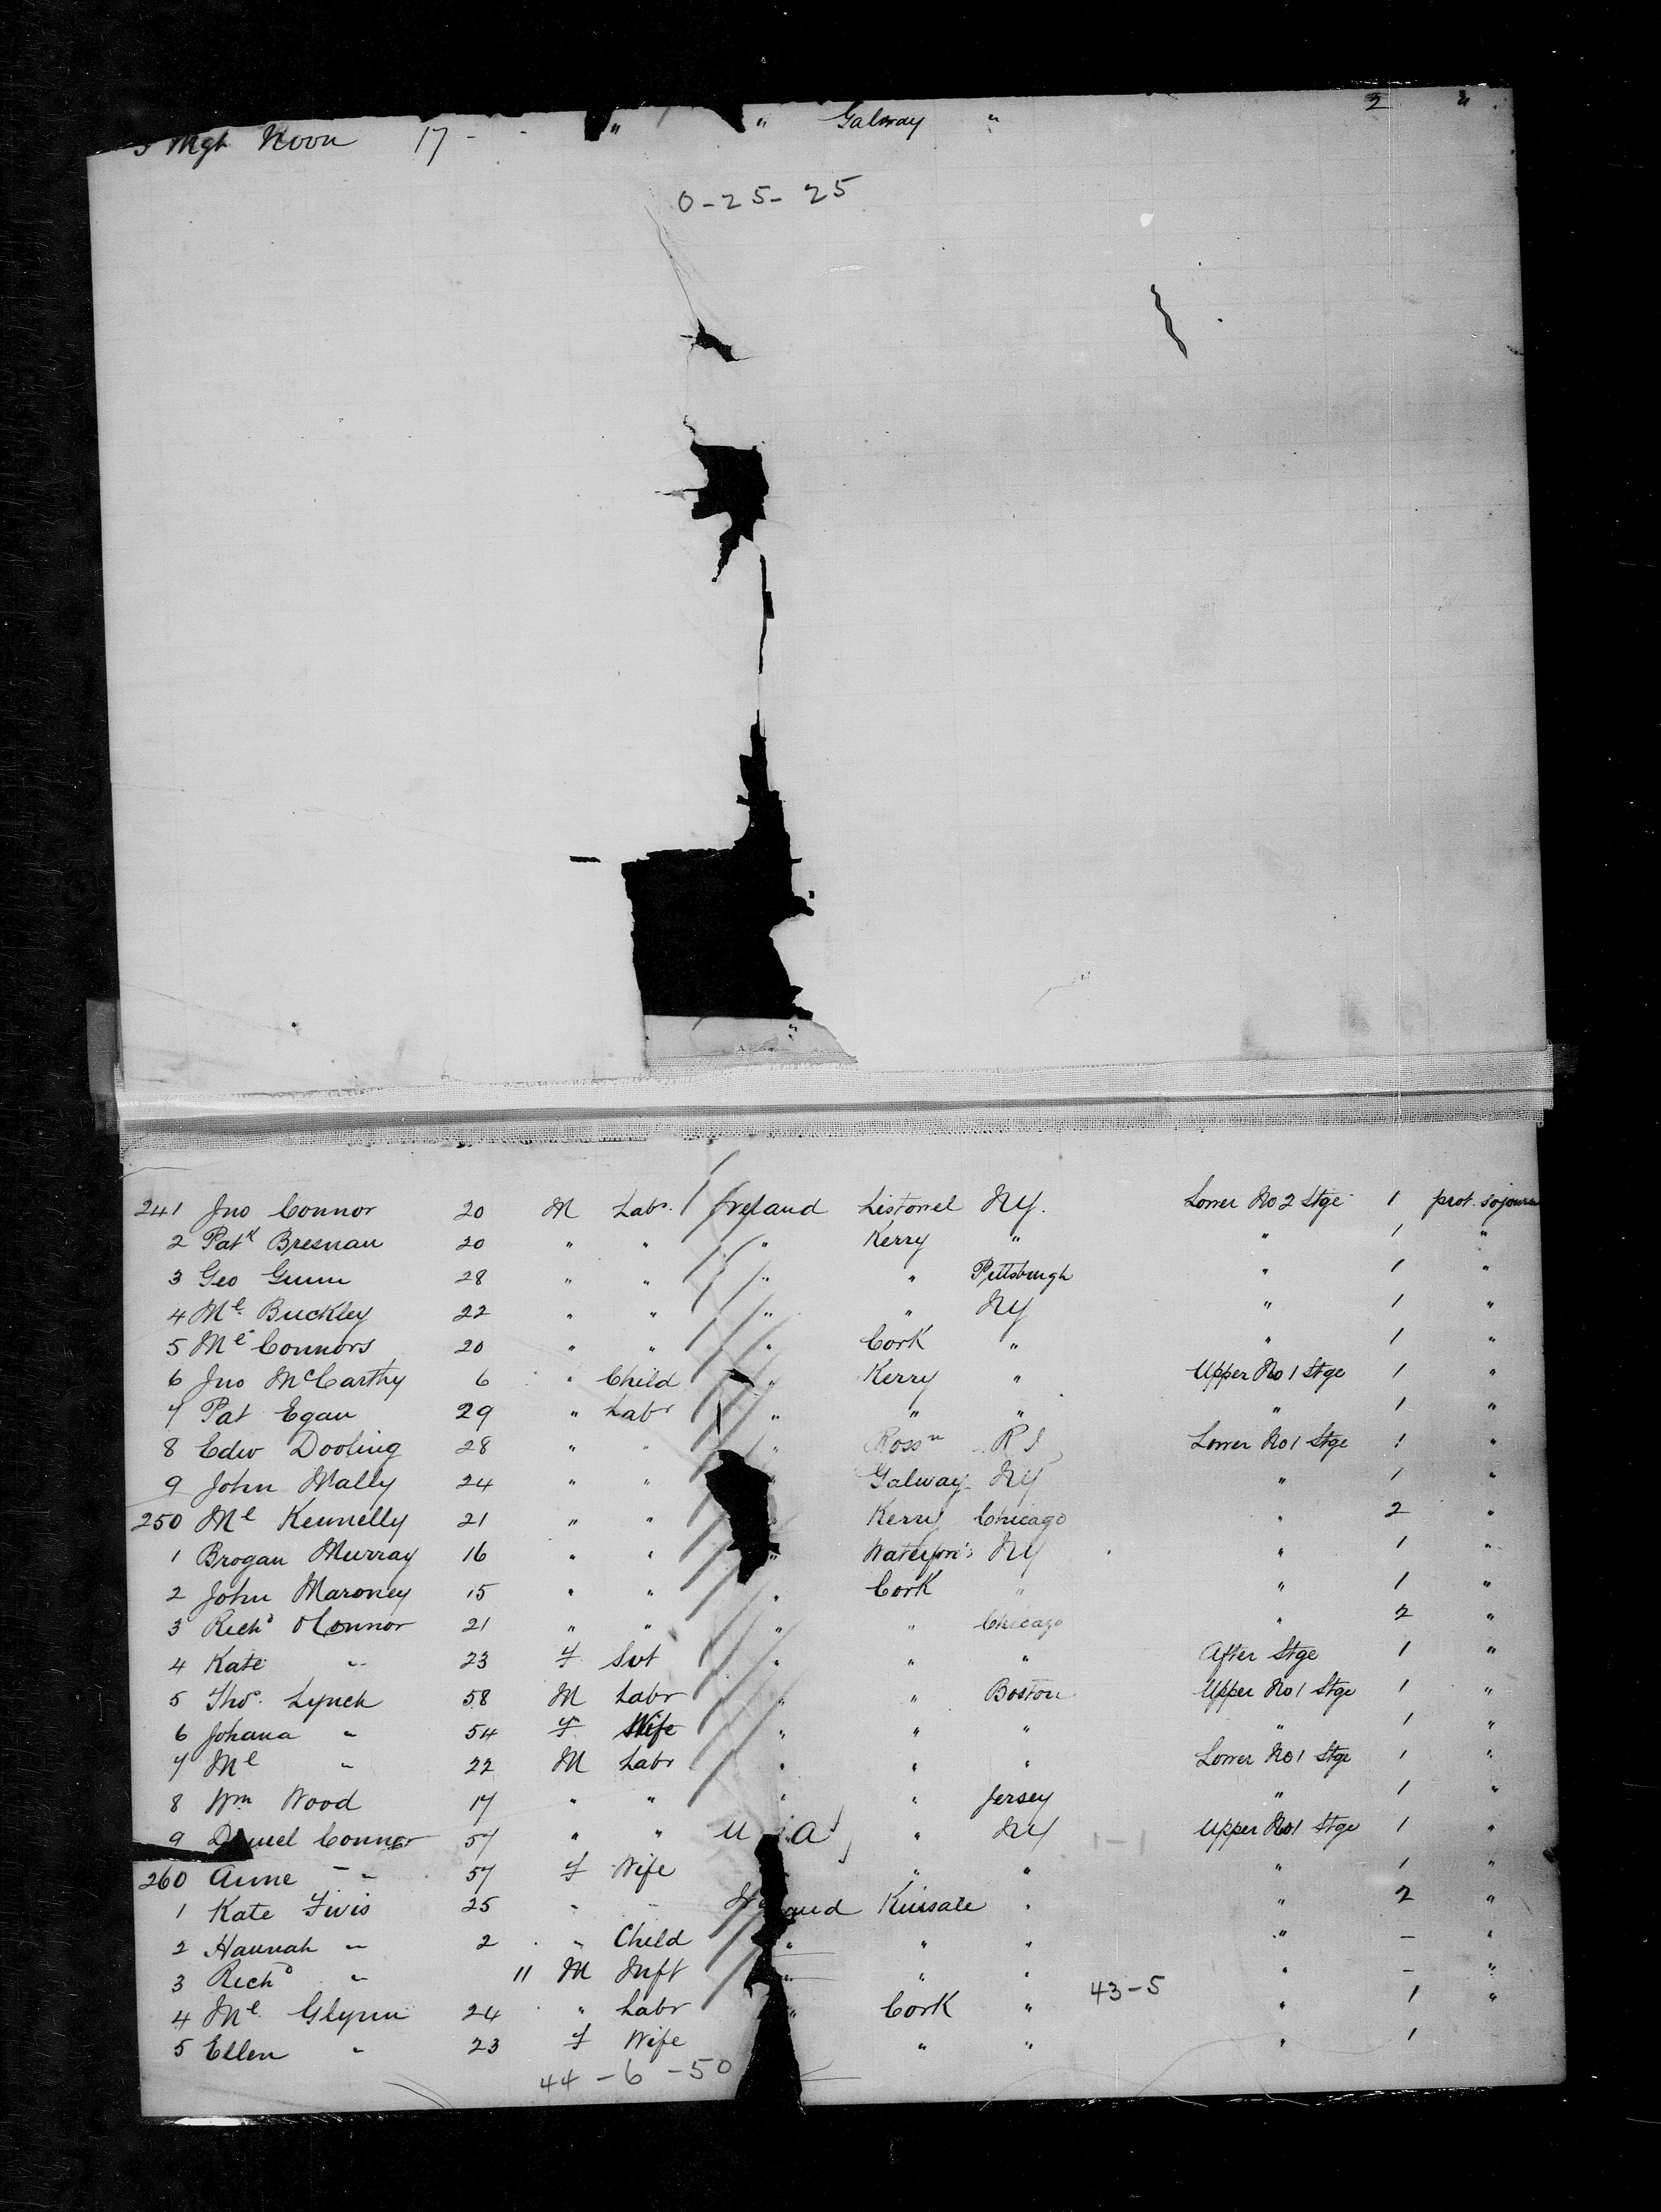 5 Mgt Noon 17 - - " " Galway " 2 "
0-25-25
241 Jno Connor 20 M Labr. Ireland Listowel NY. Lower No 2 Stge 1 prot. sojourn
2 Patk Bresnan 20 " " " Kerry " " 1 "
3 Geo Gunn 28 " " " " Pittsburgh " 1 "
4 Ml Buckley 22 " " " " NY " 1 "
5 Ml Connors 20 " " " Cork " " 1 "
6 Jno McCarthy 6 " Child " Kerry " Upper No 1 Stge 1 "
7 Pat Egan 29 " Labr " " " " 1 "
8 Edw Dooling 28 " " " Rossn R I Lower No 1 Stge 1 "
9 John Mally 24 " " " Galway NY " 1 "
250 Ml Kennelly 21 " " " Kerry Chicago " 2 "
1 Brogan Murray 16 " " " NY " 1 "
2 John Maroney 15 " " " Cork " " 1 "
3 Richd OConnor 21 " " " " Chicago " 2 "
4 Kate " 23 F Svt " " " After Stge 1 "
5 Thos. Lynch 58 M Labr " " Boston Upper No 1 Stge 1 "
6 Johana " 54 F Wife " " " " 1 "
7 Ml " 22 M Labr " " " Lower No 1 Stge 1 "
8 Wm Wood 17 " " " " Jersey " 1 "
9 Connor 57 " " U A " NY 1-1 Upper No 1 Stge 1 "
260 Anne " 57 F Wife " " " 1 "
1 Kate 25 " - Kinsale " " 2 "
2 Hannah " 2 " Child " " " " - "
3 Richd " 11 M Inft " " " " - "
4 Ml Glynn 24 " Labr " Cork " 43-5 " 1 "
5 Ellen " 23 F Wife " " " 1
44-6-50